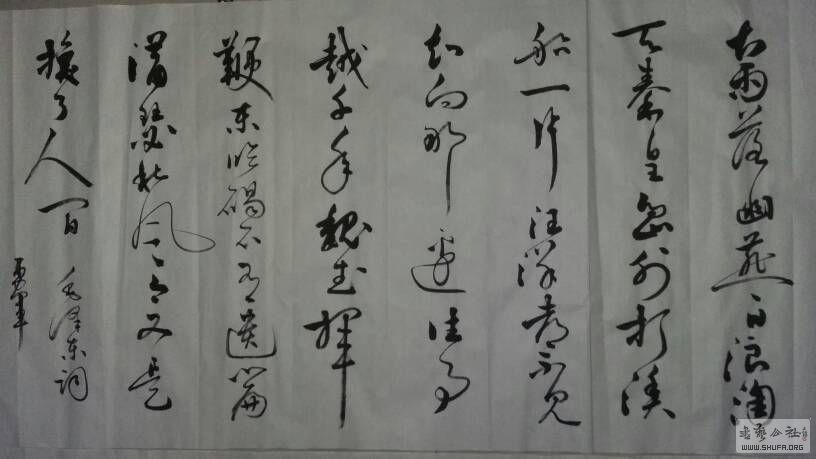 大雨落幽燕白浪滔
天秦皇岛外打渔
船一片汪洋都不见
知向那边往事
越千年魏武挥
鞭东临碣石有遗篇
萧瑟秋风今又是
换了人间 毛泽东词
书艺公社
WWW.SHUFA.ORG